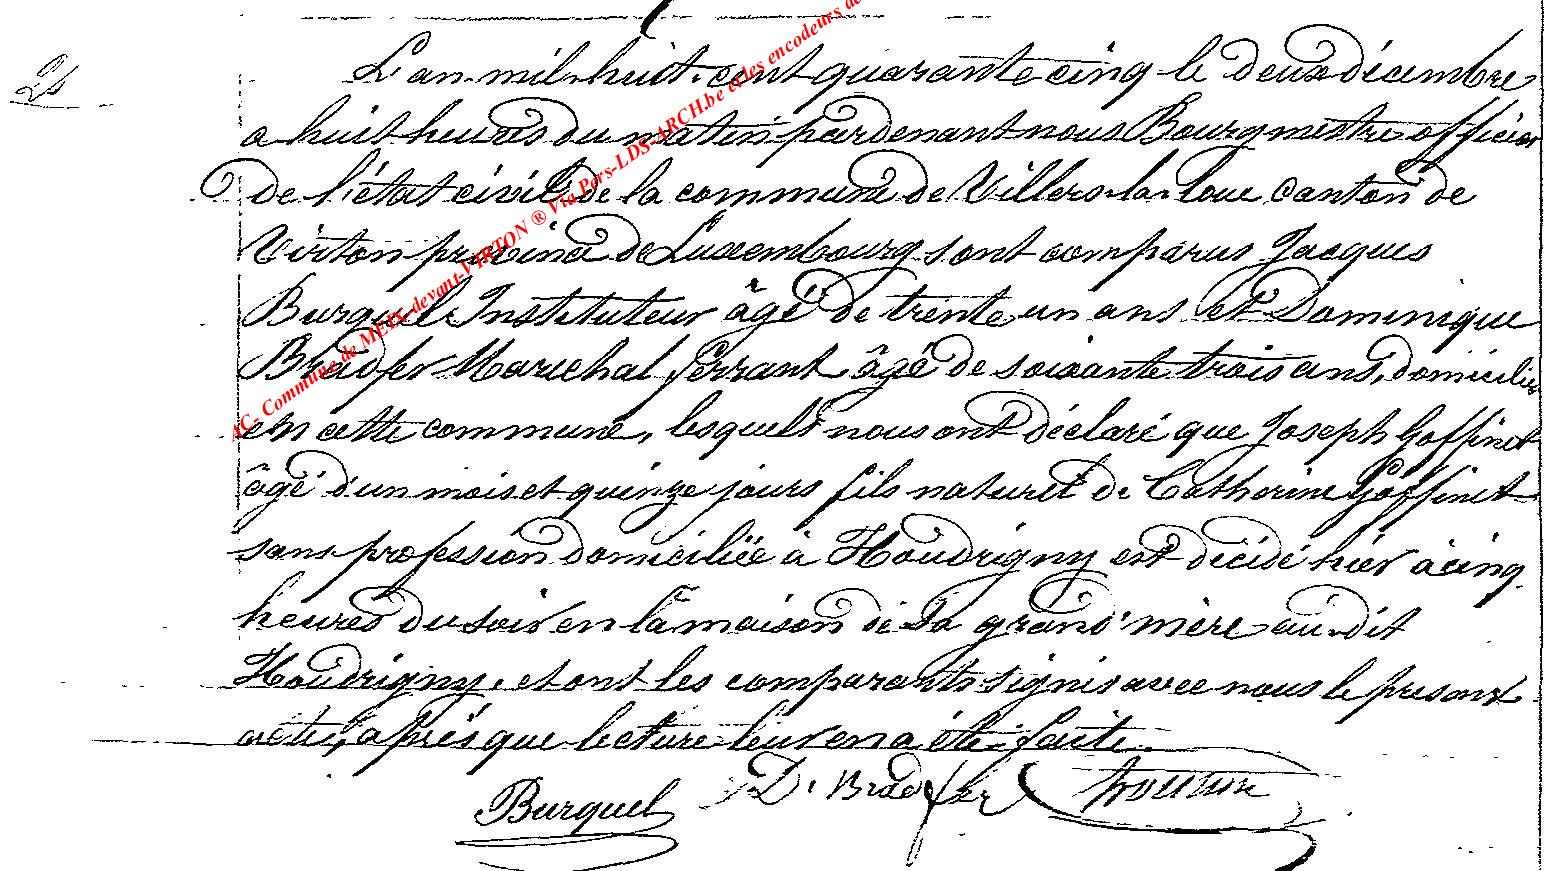 24
L'an mil huit cent quarante cinq le deux décembre
a huit heures du matin pardevant nous Bourgmestre officier
de l'état civil de la commune de Villers-la-loue canton de
Virton province de Luxembourg sont comparus Jacques
Burquel Instituteur âgé de trente un ans et Dominique
Bradfer Marechal ferrant âgé de soixante trois ans, domiciliés
en cette commune, lesquels nous ont déclaré que Joseph Goffinet
âgé d'un mois et quinze jours fils naturel de Catherine Goffinet
sans profession domiciliée à Houdrigny est décédé hier à cinq
heures du soir en la maison de sa grand'mère au dit
Houdrigny, et ont les comparants signés avec nous le present
acte, après que lecture leur en a été faite.
Burquel D. Bradfer
AC- Commune de MEIX-devant-VIRTON ® Via Pers-LDS-ARCH.be et les encodeurs de